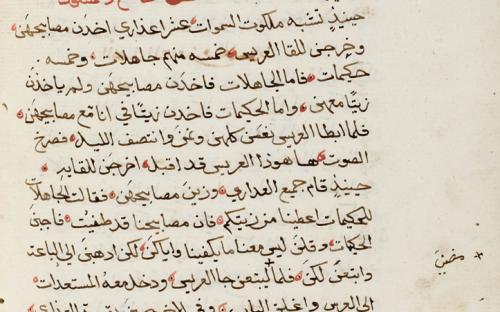 حينيذ تشبه ملكوت السموات عشر اعذاري اخدن مصابيحهن
وخرجن للقا العريس خمسه منهم جاهلات وخمسه
حكيمات فاما الجاهلات فاخدن مصابيحهن ولم ياخذن
زيتا معهن واما الحكيمات فاخدن زيتا في انا مع مصابيحهن
فلما ابطا العريس نعسن كلهن ونمن وانتصف الليل فصرخ
الصوت هاهوذا العريس قد اقبل اخرجن للقايه
حينيذ قام جميع العداري وزين مصابيحهن فقالت الجاهلات
للحكيمات اعطينا من زيتكم فان مصابيحنا قد طفيت فاجبن
الحكمات وقلن ليس معنا ما يكفينا واياكن لكن ادهبن الى الباعة
وابتعن لكن فلما ليبتعن جا العريس ودخل معه المستعدات
الى العرس واغلق الباب وفي الاخير